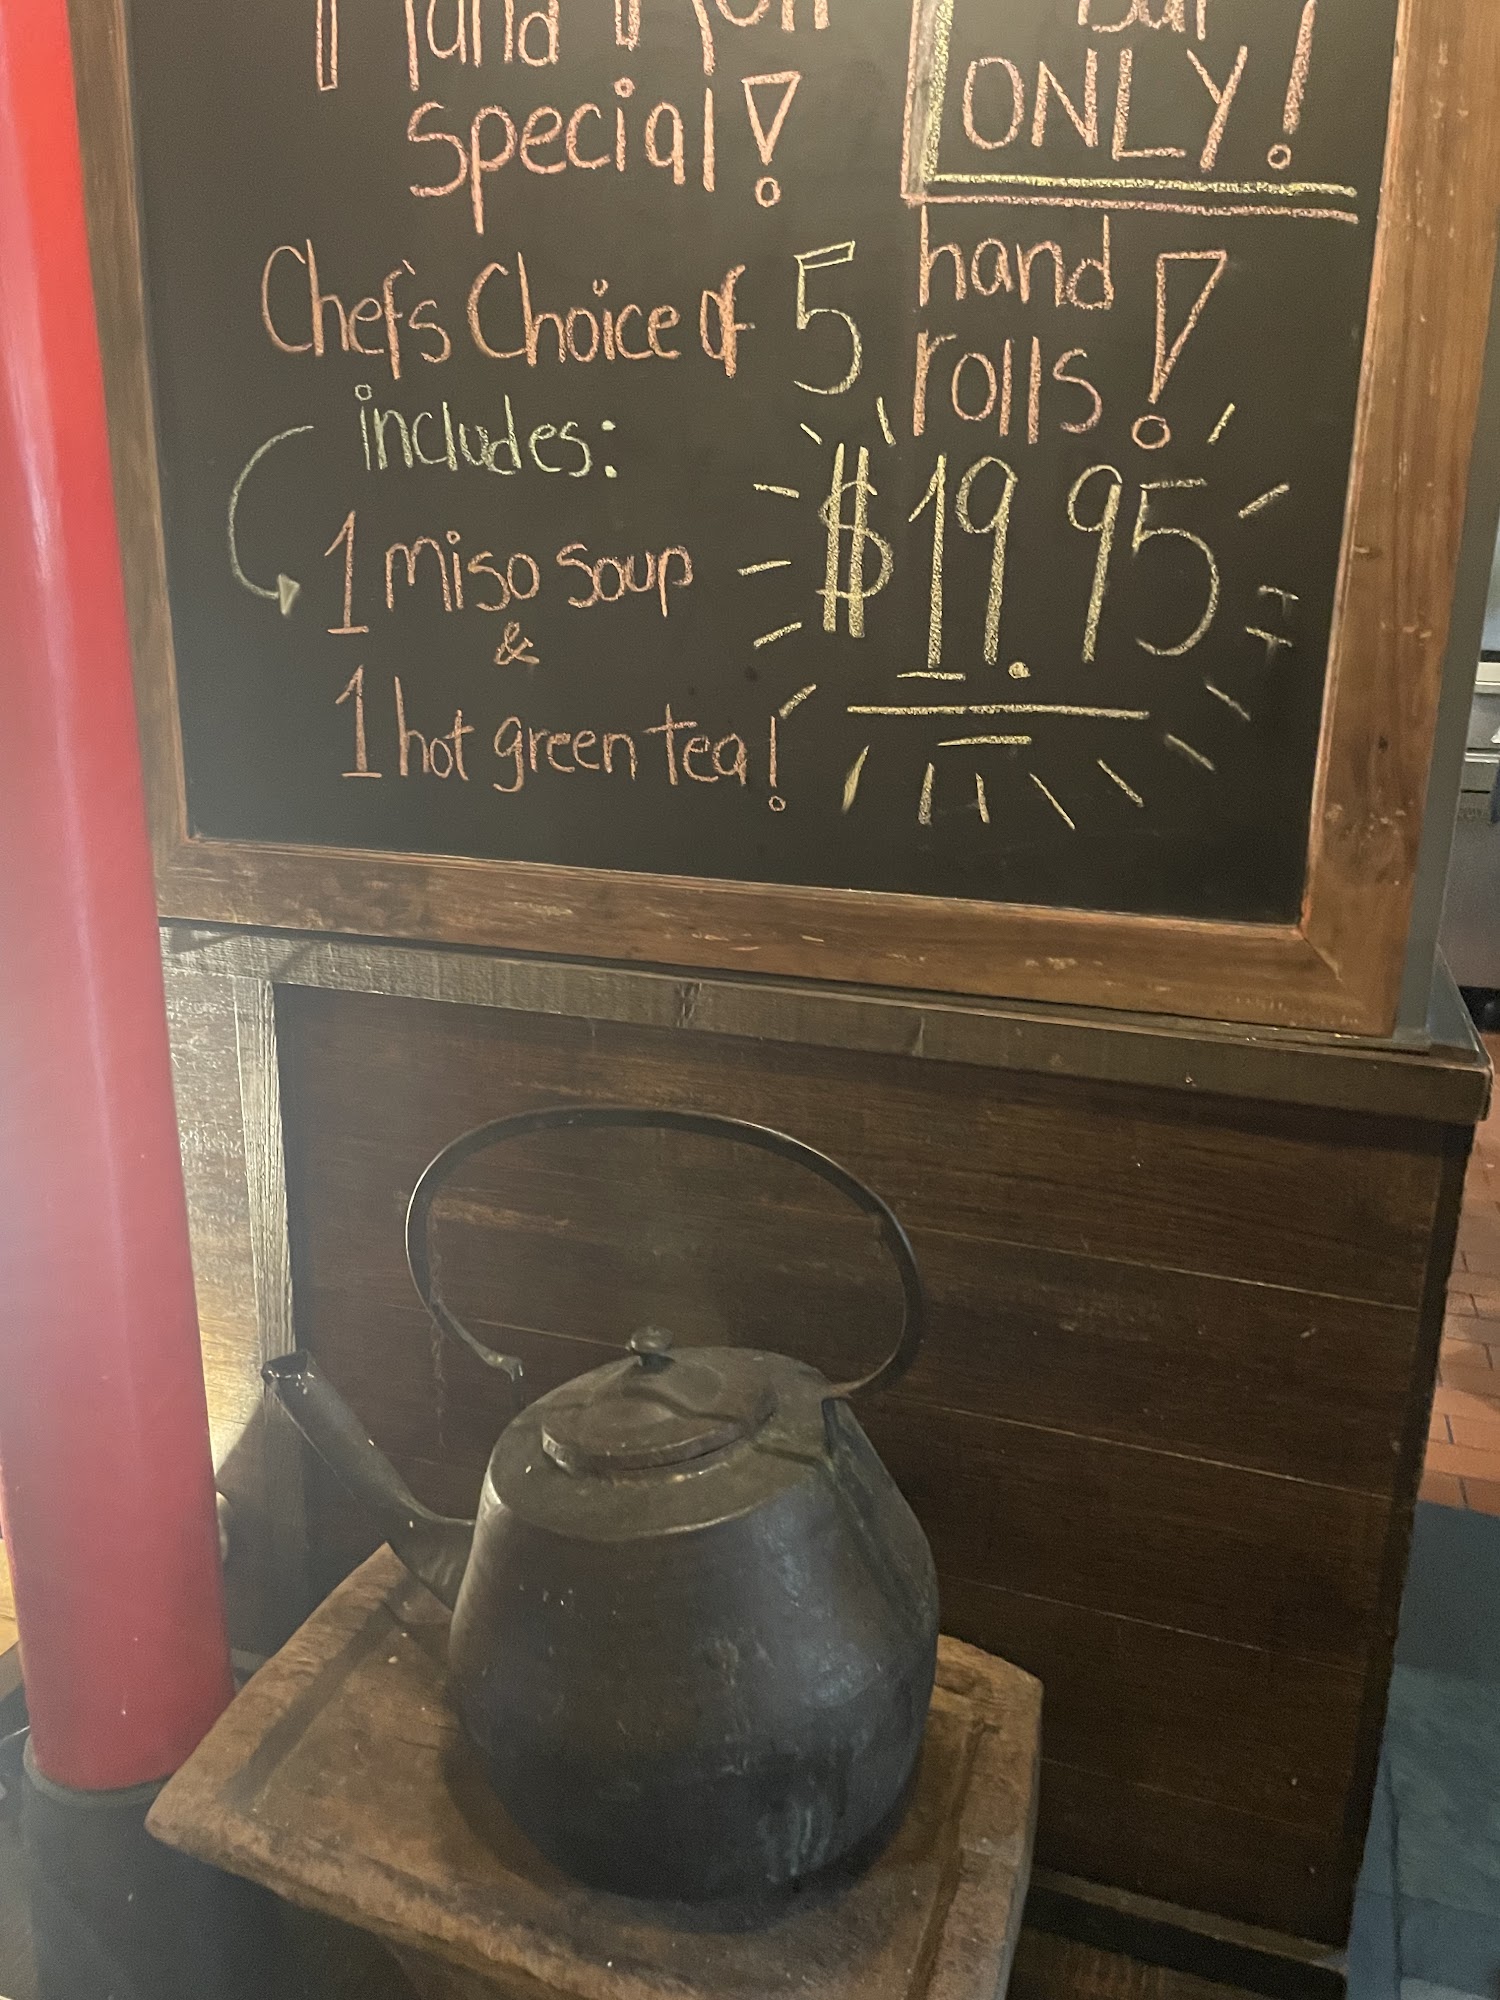 Hand Roll
special!
Bar
ONLY!
Chef's Choice of 5 hand
rolls!
includes:
$19.95
1 miso soup
&
1 hot green tea!